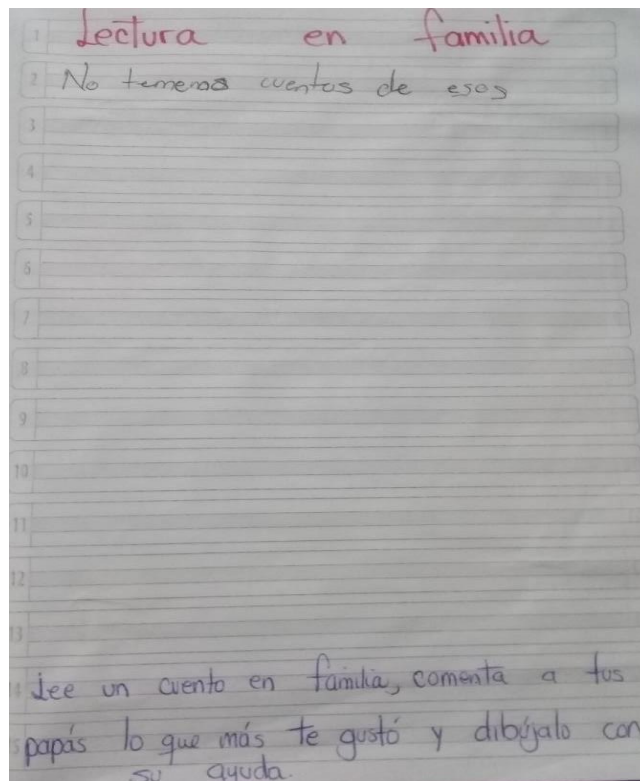 Lectura en familia
No tememos cuentos de esos
Lee un cuento en familia, comenta a tus
papás lo que más te gustó y dibújalo con
su ayuda.